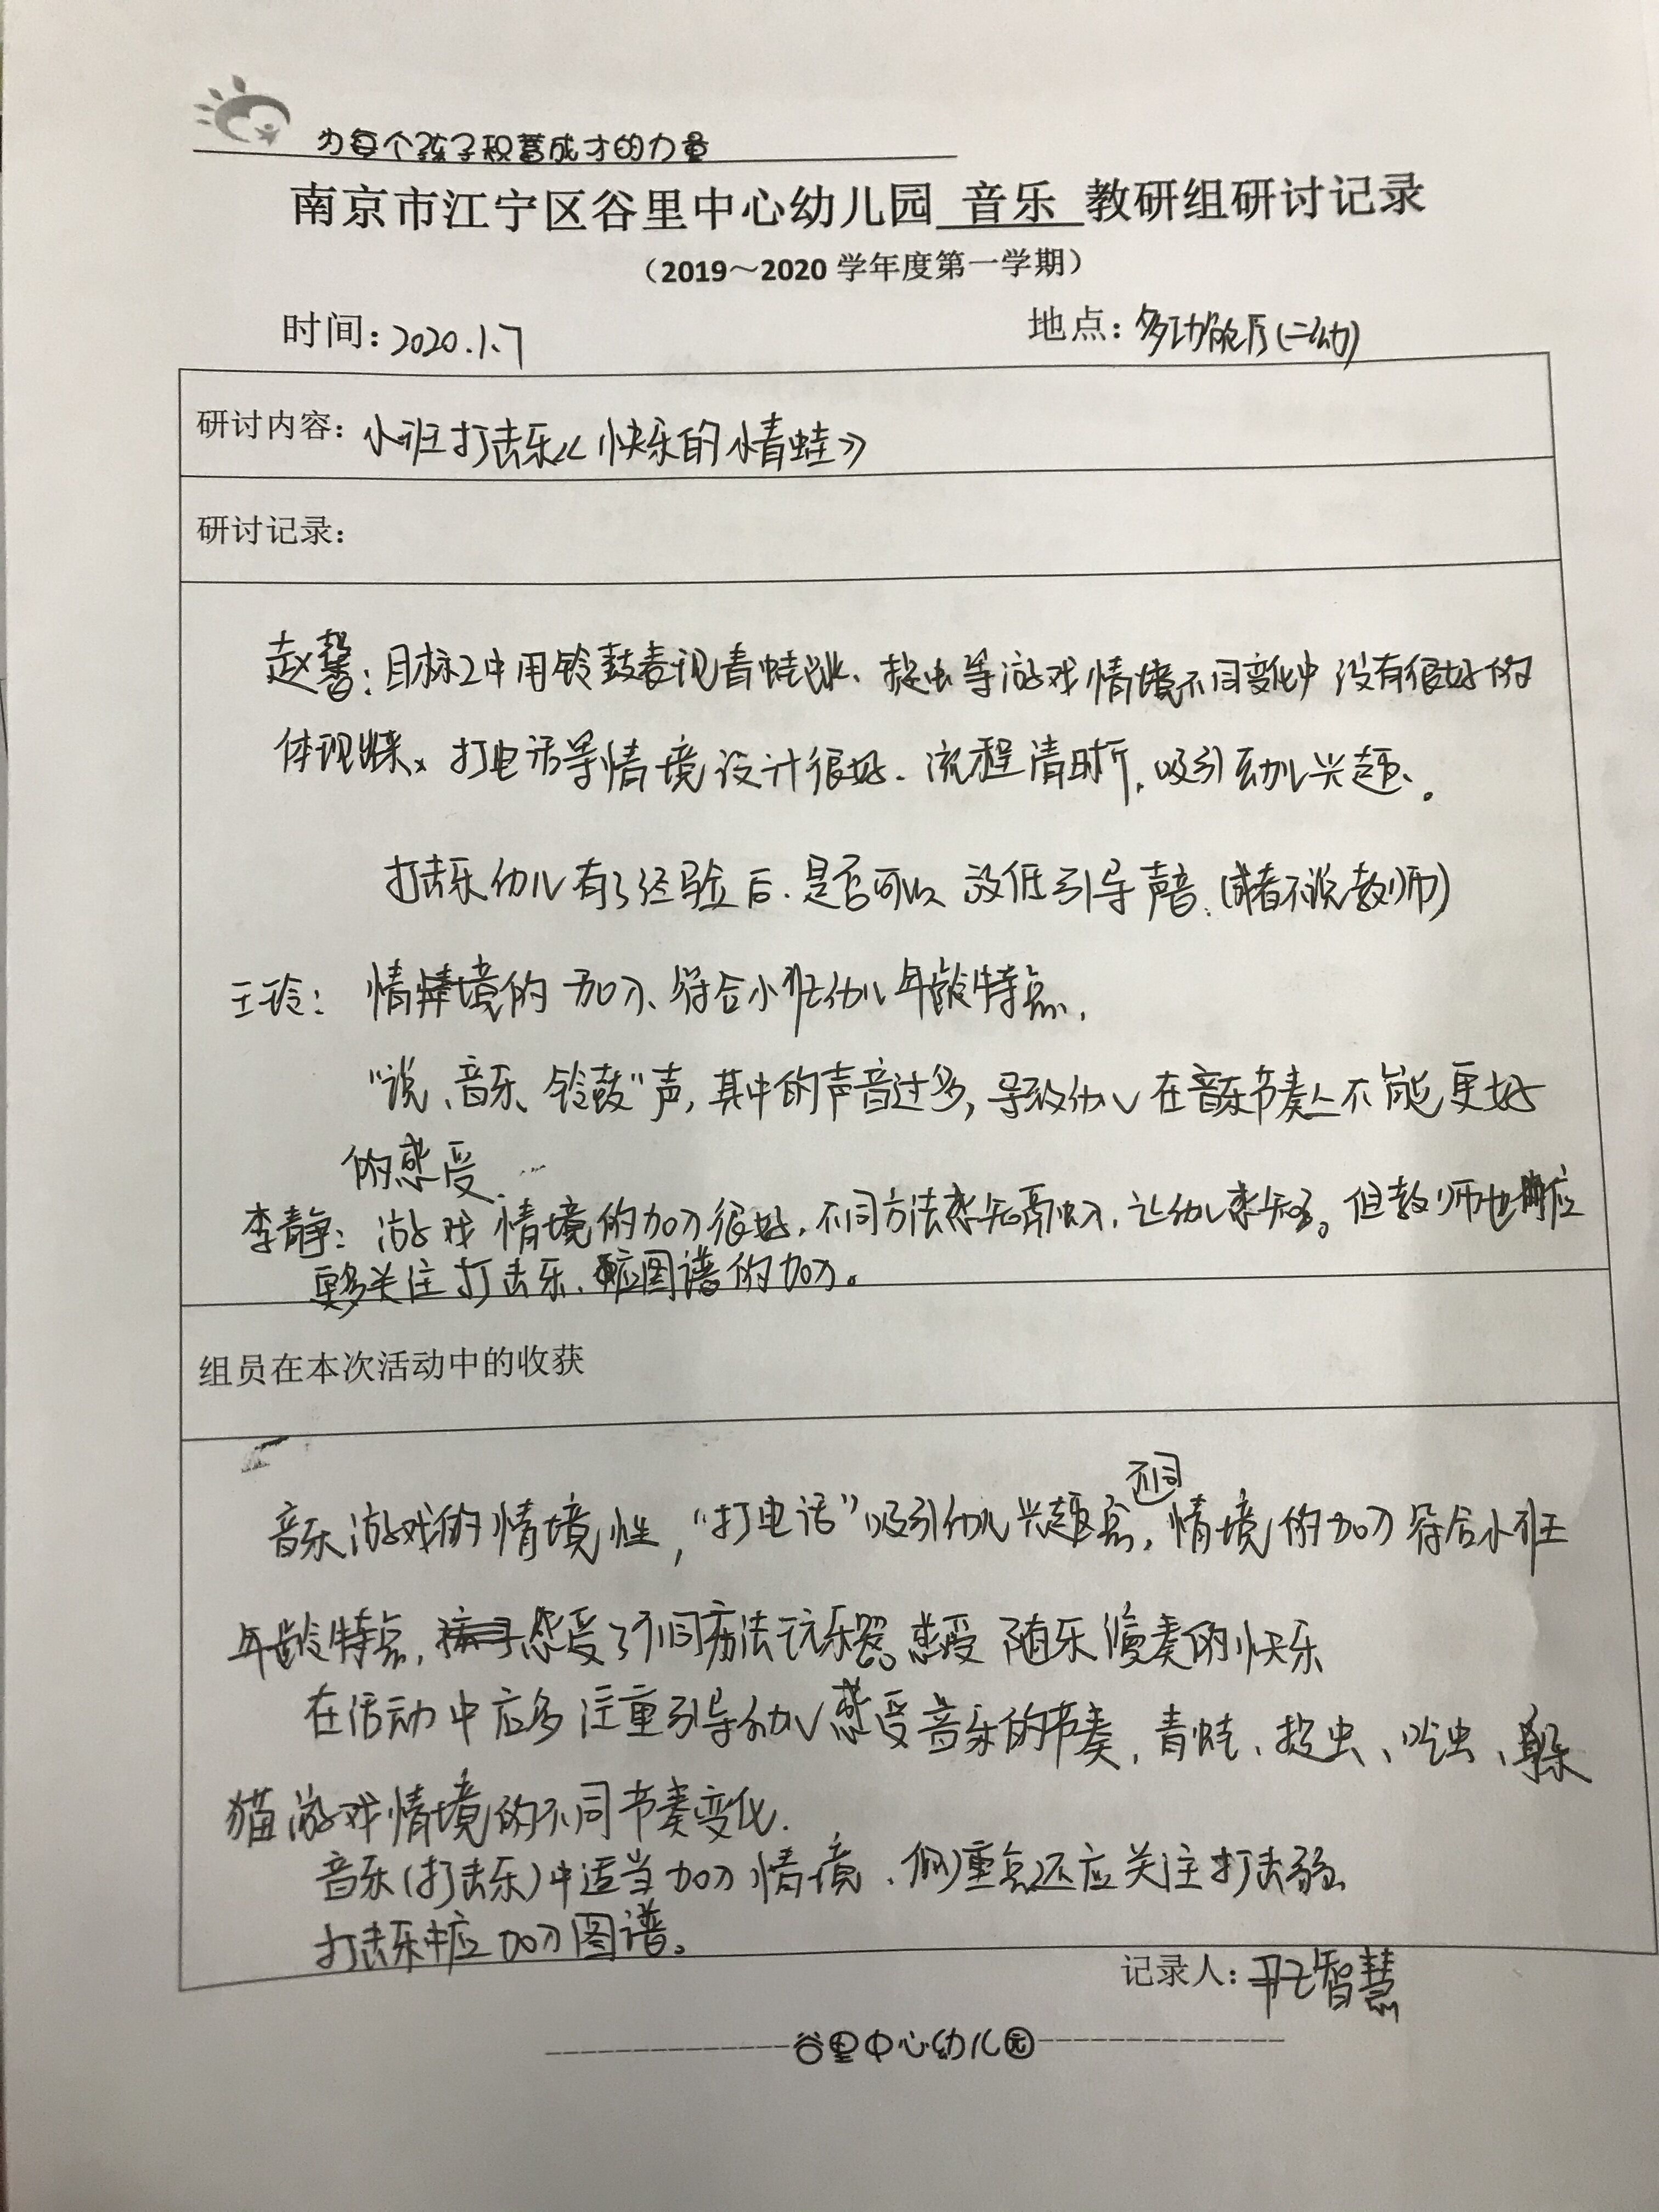 为每个孩子积蓄成才的力量
南京市江宁区谷里中心幼儿园 音乐 教研组研讨记录
（2019～2020 学年度第一学期）
时间：2020.1.7 地点：多功能厅(二幼)
研讨内容：小班打击乐《快乐的小青蛙》
研讨记录：
赵馨：目标2中用铃鼓表现青蛙跳、捉虫等游戏情境不同变化中 没有很好的
体现出来、打电话等情境设计很好. 流程清晰, 吸引幼儿兴趣。
打击乐幼儿有了经验后.是否可以 放低引导声音.(或者不说教师)
王玲：情境的加入、符合小班幼儿年龄特点.
"说、音乐、铃鼓"声, 其中的声音过多, 导致幼儿在音乐节奏上不能更好
的感受.
李静：游戏情境的加入很好. 不同方法感知融入. 让幼儿感知。但教师也应
更多关注打击乐、应图谱的加入。
组员在本次活动中的收获
音乐游戏的情境性, "打电话"吸引幼儿兴趣高, 不同情境的加入符合小班
年龄特点, 感受了不同方法玩乐器 感受 随乐演奏的快乐
在活动中应多注重引导幼儿感受音乐的节奏, 青蛙、捉虫、吃虫、躲
猫游戏情境的不同节奏变化.
音乐(打击乐)中适当加入情境、但重点还应关注打击乐
打击乐中应加入图谱。
记录人：智慧
谷里中心幼儿园